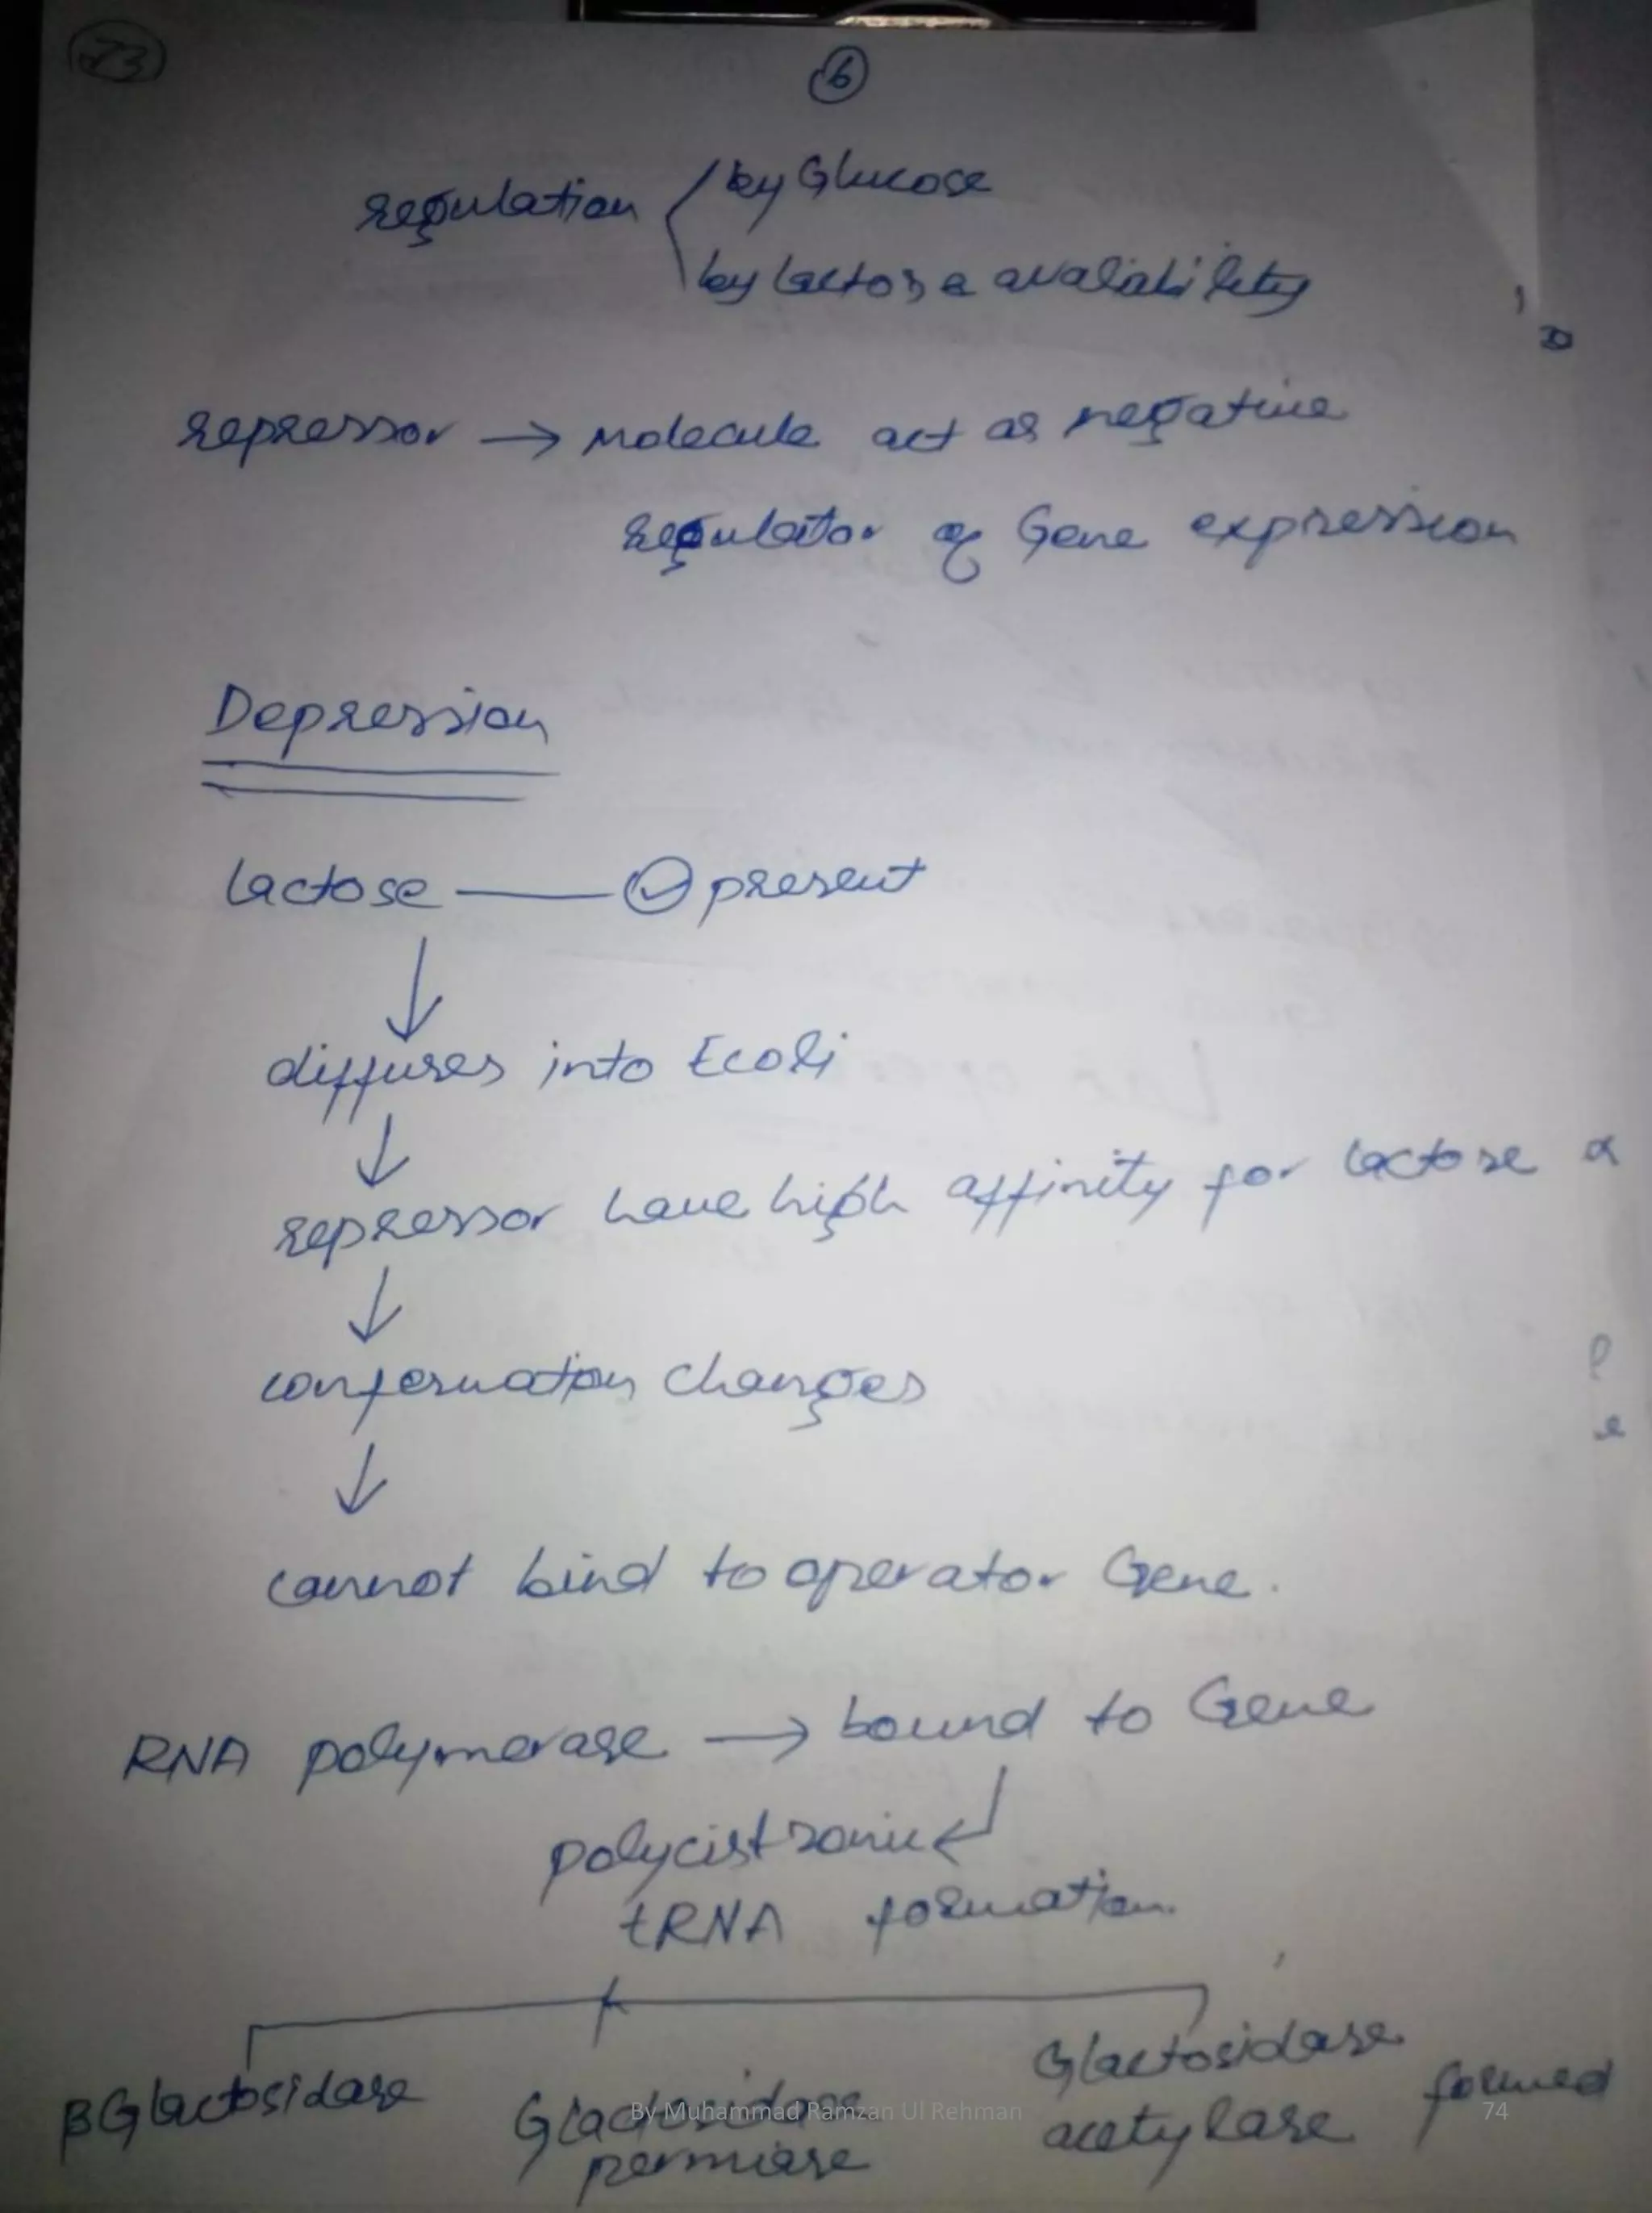 73
6
regulation by Glucose
by lactose avaliability
repressor → Molecule act as negative
regulator of Gene expression
Depression
lactose — present
diffuses into Ecoli
repressor have high affinity for lactose
conformation changes
cannot bind to operator Gene.
RNA polymerase → bound to Gene
polycistronic
tRNA formation.
βGlactosidase Glactosidase permiase Glactosidase acetylase formed
By Muhammad Ramzan Ul Rehman 74